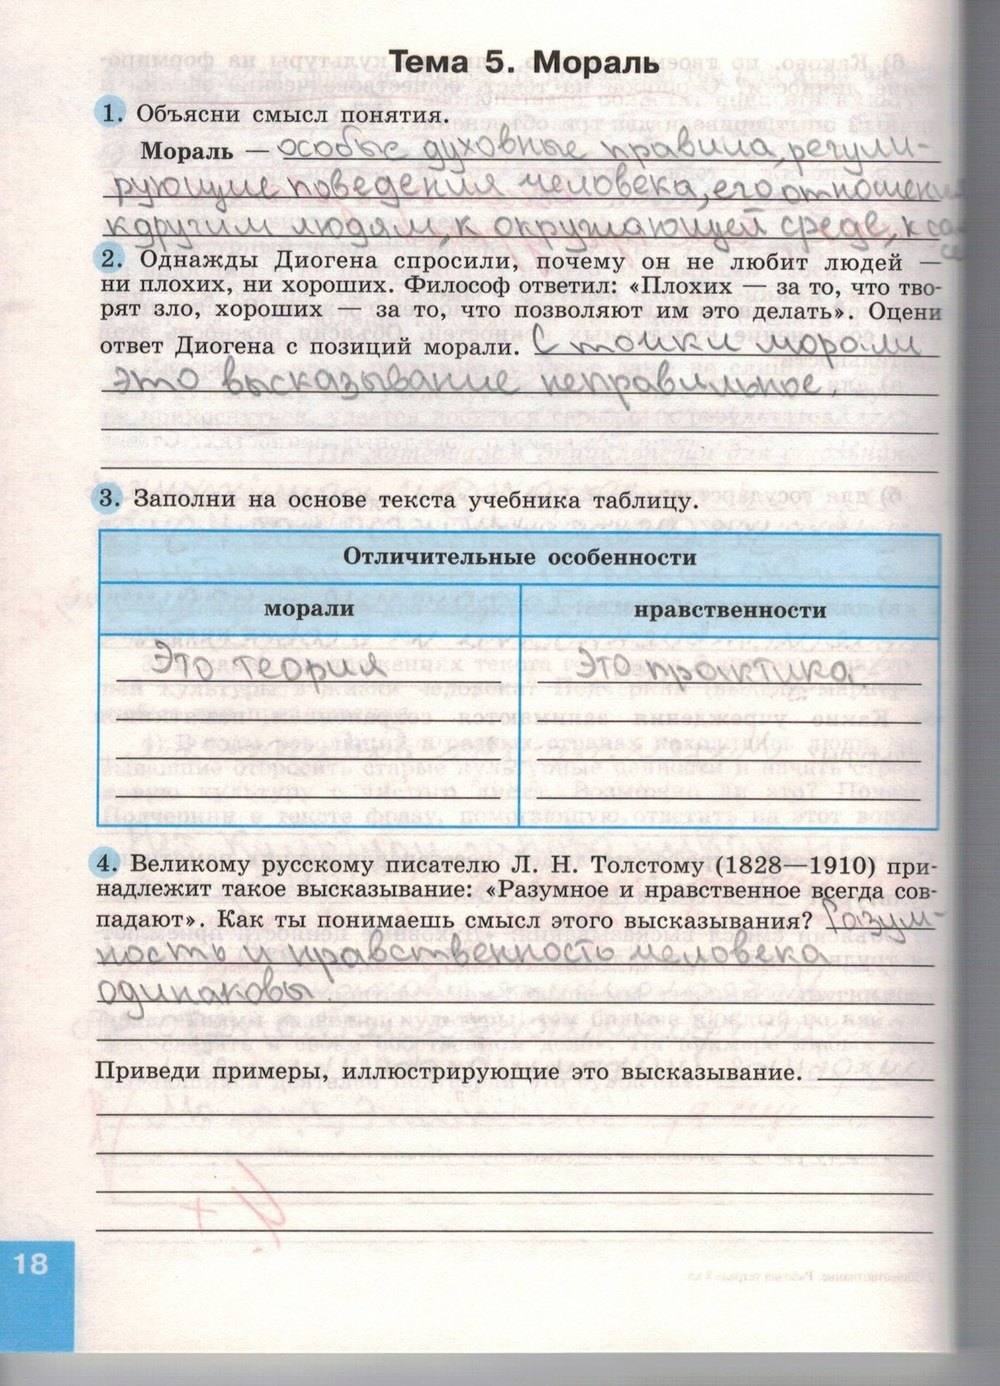 Тема 5. Мораль
1. Объясни смысл понятия.
Мораль — особые духовные правила, регули-
рующие поведения человека, его отношения
к другим людям, к окружающей среде, к са-
2. Однажды Диогена спросили, почему он не любит людей —
ни плохих, ни хороших. Философ ответил: «Плохих — за то, что тво-
рят зло, хороших — за то, что позволяют им это делать». Оцени
ответ Диогена с позиций морали. С тоики морали
это высказывание неправильное.
3. Заполни на основе текста учебника таблицу.
Отличительные особенности
морали нравственности
Это теория Это практика
4. Великому русскому писателю Л. Н. Толстому (1828—1910) при-
надлежит такое высказывание: «Разумное и нравственное всегда сов-
падают». Как ты понимаешь смысл этого высказывания? Разум-
ность и нравственность человека
одинаковы
Приведи примеры, иллюстрирующие это высказывание.
18